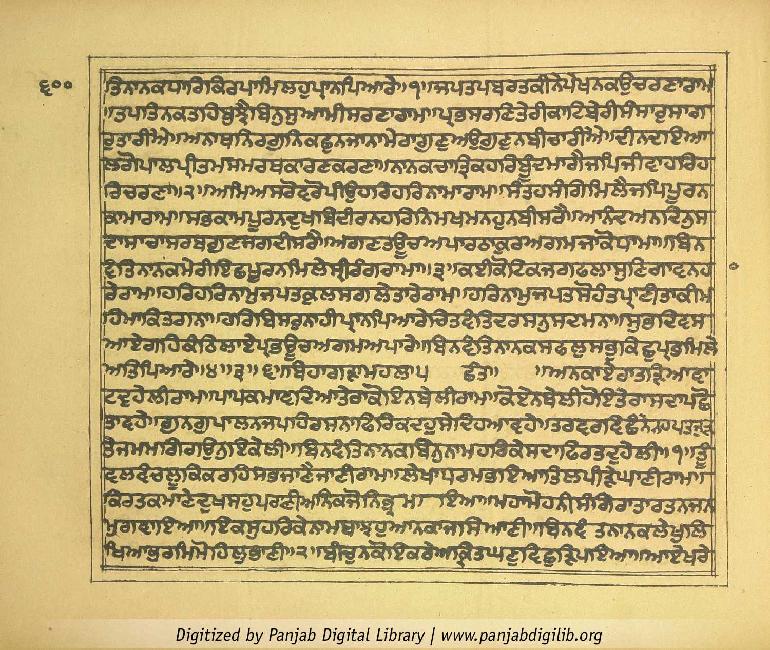 ਤਿਨਾਨਕਧਾਰਿਕਿਰਪਾਮਿਲਹੁਪ੍ਰਾਨਪਿਆਰੇ॥੧॥ਜਪਤਪਬਰਤਕੀਨੇਪੇਖਨਕਉਚਰਣਾਰਾਮ
॥ਤਪਤਿਨਕਤਹਿਬੁਝੈਬਿਨੁਸੁਆਮੀਸਰਣਾਰਾਮ॥ਪ੍ਰਭਸਰਣਿਤੇਰੀਕਾਟਿਬੇਰੀਸੰਸਾਰੁਸਾਗ
ਰੁਤਾਰੀਐ॥ਅਨਾਥਨਿਰਗੁਨਿਕਛੁਨਜਾਨਾਮੇਰਾਗੁਣੁਅਉਗੁਣੁਨਬੀਚਾਰੀਐ॥ਦੀਨਦਇਆ
ਲਗੋਪਾਲਪ੍ਰੀਤਮਸਮਰਥਕਾਰਣਕਰਣਾ॥ਨਾਨਕਚਾਤ੍ਰਿਕਹਰਿਬੂੰਦਮਾਗੈਜਪਿਜੀਵਾਹਰਿਹ
ਰਿਚਰਣਾ॥੨॥ਅਮਿਅਸਰੋਵਰੋਪੀਉਹਰਿਹਰਿਨਾਮਾਰਾਮ॥ਸੰਤਹਸੰਗਿਮਿਲੈਜਪਿਪੂਰਨ
ਕਾਮਾਰਾਮ॥ਸਭਕਾਮਪੂਰਨਦੁਖਬਿਦੀਰਨਹਰਿਨਿਮਖਮਨਹੁਨਬੀਸਰੈ॥ਆਨੰਦਅਨਦਿਨੁਸ
ਦਾਸਾਚਾਸਰਬਗੁਣਜਗਦੀਸਰੈ॥ਅਗਣਤਊਚਅਪਾਰਠਾਕੁਰਅਗਮਜਾਕੋਧਾਮਾ॥ਬਿਨ
ਵੰਤਿਨਾਨਕਮੇਰੀਇਛਪੂਰਨਮਿਲੇਸ੍ਰੀਰੰਗਰਾਮਾ॥੩॥ਕਈਕੋਟਿਕਜਗਫਲਾਸੁਣਿਗਾਵਨਹ
ਰੇਰਾਮ॥ਹਰਿਹਰਿਨਾਮੁਜਪਤਕੁਲਸਗਲੇਤਾਰੇਰਾਮ॥ਹਰਿਨਾਮੁਜਪਤਸੋਹੰਤਪ੍ਰਾਣੀਤਾਕੀਮ
ਹਿਮਾਕਿਤਗਨਾ॥ਹਰਿਬਿਸਰੁਨਾਹੀਪ੍ਰਾਨਪਿਆਰੇਚਿਤਵੰਤਿਦਰਸਨੁਸਦਮਨਾ॥ਸੁਭਦਿਵਸ
ਆਏਗਹਿਕੰਠਿਲਾਏਪ੍ਰਭਊਚਅਗਮਅਪਾਰੇ॥ਬਿਨਵੰਤਿਨਾਨਕਸਫਲੁਸਭੁਕਿਛੁਪ੍ਰਭਮਿਲੇ
ਅਤਿਪਿਆਰੇ॥੪॥੩॥੬॥ਬਿਹਾਗੜਾਮਹਲਾ੫ ਛੰਤ॥ ॥ਅਨਕਾਏਰਾਤੜਿਆਵਾ
ਟਦੁਹੇਲੀਰਾਮ॥ਪਾਪਕਮਾਵਦਿਆਤੇਰਾਕੋਇਨਬੇਲੀਰਾਮ॥ਕੋਏਨਬੇਲੀਹੋਇਤੇਰਾਸਦਾਪਛੋ
ਤਾਵਹੇ॥ਗੁਨਗੁਪਾਲਨਜਪਹਿਰਸਨਾਫਿਰਿਕਦਹੁਸੇਦਿਹਆਵਹੇ॥ਤਰਵਰਵਿਛੁੰਨੇਨਹਪਤਜੁੜ
ਤੇਜਮਮਗਿਗਉਨੁਇਕੇਲੀ॥ਬਿਨਵੰਤਿਨਾਨਕਬਿਨੁਨਾਮਹਰਿਕੇਸਦਾਫਿਰਤਦੁਹੇਲੀ॥੧॥ਤੂੰ
ਵਲਵੰਚਲੂਕਿਕਰਹਿਸਭਜਾਣੈਜਾਣੀਰਾਮ॥ਲੇਖਾਧਰਮਭਇਆਤਿਲਪੀੜੇਘਾਣੀਰਾਮ॥
ਕਿਰਤਕਮਾਣੇਦੁਖਸਹੁਪਰਾਣੀਅਨਿਕਜੋਨਿਭ੍ਰਮਾਇਆ॥ਮਹਾਮੋਹਨੀਸੰਗਿਰਾਤਾਰਤਨਜਨ
ਮੁਗਵਾਇਆ॥ਇਕਸੁਹਰਿਕੇਨਾਮਬਾਝਹੁਆਨਕਾਜਸਿਆਣੀ॥ਬਿਨਵੰਤਨਾਨਕਲੇਖੁਲਿ
ਖਿਆਭਰਮਿਮੋਹਿਲੁਭਾਣੀ॥੨॥ਬੀਚੁਨਕੋਇਕਰੇਅਕ੍ਰਿਤਘਣੁਵਿਛੁੜਿਪਇਆ॥ਆਏਖਰੇ
੬੦੦
Digitized by Panjab Digital Library | www.panjabdigilib.org